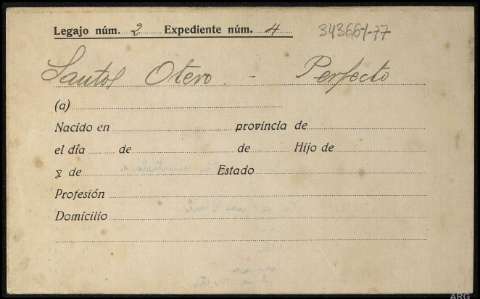 Legajo núm. 2 Expediente núm. 4 343661-77
Santos Otero - Perfecto
(a)
Nacido en provincia de
el día de de Hijo de
y de Estado
Profesión
Domicilio
ARG